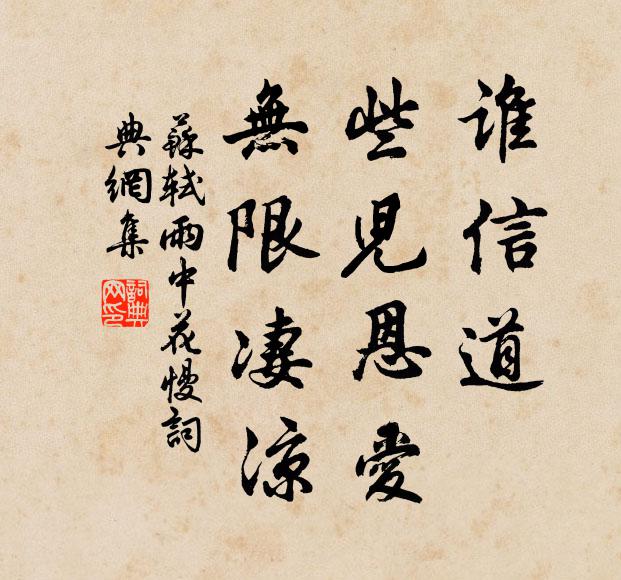 誰信道
些児恩愛
無限凄涼
蘇軾雨中花慢詞
典網集
詞典网印